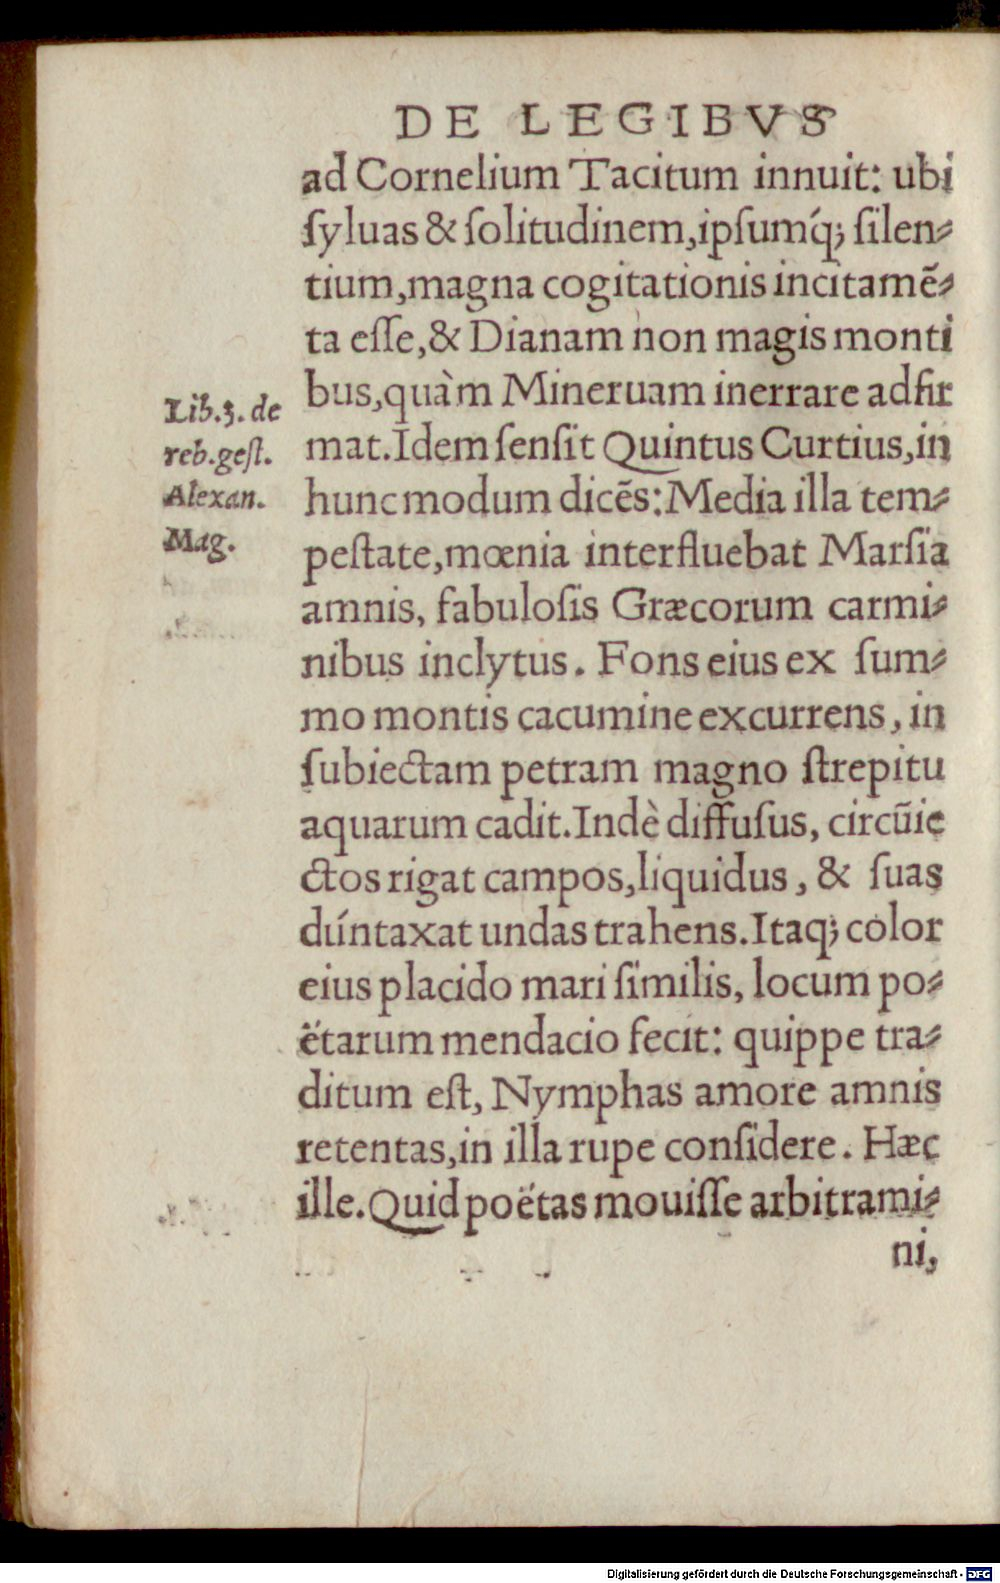 DE LEGIBVS
ad Cornelium Tacitum innuit: ubi
ſyluas & ſolitudinem, ipſumq́; ſilen-
tium, magna cogitationis incitamẽ-
ta eſſe, & Dianam non magis monti
bus, quàm Mineruam inerrare adfir
mat. Idem ſenſit Quintus Curtius, in
hunc modum dicẽs: Media illa tem-
peſtate, mœnia interfluebat Marſia
amnis, fabuloſis Græcorum carmi-
nibus inclytus. Fons eius ex ſum-
mo montis cacumine excurrens, in
ſubiectam petram magno ſtrepitu
aquarum cadit. Indè diffuſus, circũie
ctos rigat campos, liquidus, & ſuas
dúntaxat undas trahens. Itaq; color
eius placido mari ſimilis, locum po-
ëtarum mendacio fecit: quippe tra-
ditum eſt, Nymphas amore amnis
retentas, in illa rupe conſidere. Hæc
ille. Quid poëtas mouiſſe arbitrami-
ni,
Lib. 3. de
reb. geſt.
Alexan.
Mag.
Digitalisierung gefördert durch die Deutsche Forschungsgemeinschaft - DFG